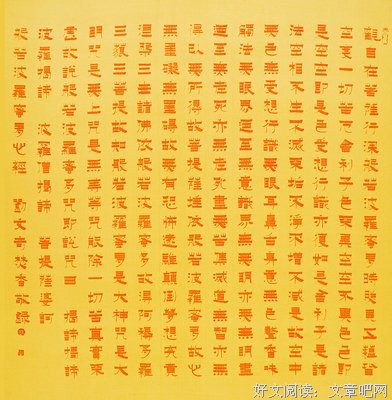 觀自在菩薩行深般若波羅蜜多時照見五蘊皆
空度一切苦厄舍利子色不異空空不異色色即
是空空即是色受想行識亦復如是舍利子是諸
法空相不生不滅不垢不淨不增不減是故空中
無色無受想行識無眼耳鼻舌身意無色聲香味
觸法無眼界乃至無意識界無無明亦無無明盡
乃至無老死亦無老死盡無苦集滅道無智亦無
得以無所得故菩提薩埵依般若波羅蜜多故心
無罣礙無罣礙故無有恐怖遠離顛倒夢想究竟
涅槃三世諸佛依般若波羅蜜多故得阿耨多羅
三藐三菩提故知般若波羅蜜多是大神咒是大
明咒是無上咒是無等等咒能除一切苦真實不
虛故說般若波羅蜜多咒即說咒曰 揭諦揭諦
波羅揭諦 波羅僧揭諦 菩提薩婆訶
般若波羅蜜多心經 焚香敬錄
好文阅读：文章吧网